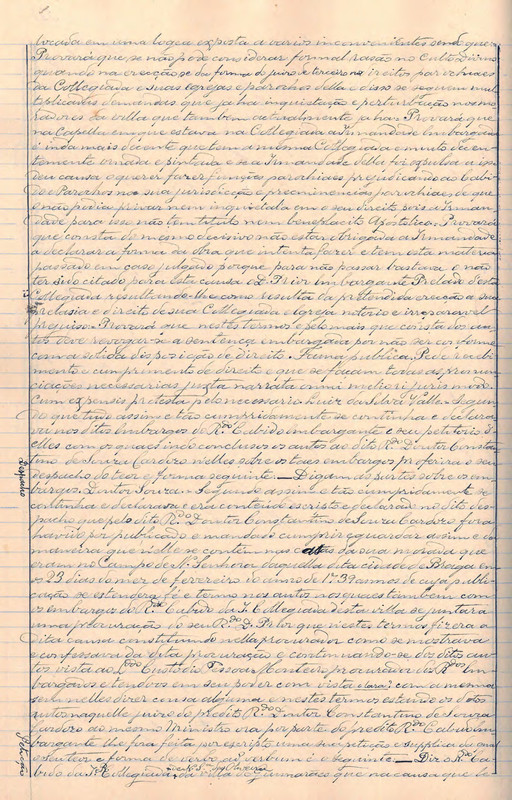 locada em uma logea exposta a varios inconvenientes sendo que
Provará que se não pode considerar formal rasão no Culto Divino
quando na erecção se da forma de juiso e terceiro nos ireitos parochiaes
da Collegiada e suas egrejas e parochos della e disso se seguem mul
tiplicadas demandas que ja ha inquietação e perturbação nos mo
radores da villa que tambem actualmente ja ha. Provará que
na Capella em que estava na Collegiada a Irmandade embargada
é inda mais decente que tem a mesma Collegiada e muito decen
temente ornada e pintada e se a Irmandade della foi expulsa a is
deu causa o querer fazer funções parochiaes prejudicando ao Cabi
do e Parochos na sua jurisdicção e preeminencias parochiaes de que
o não podia privar nem inquietal-o em o seu direito pois a Irman
dade para isso não tem titulo nem beneplacito Apostolico. Provará
que consta do mesmo decisivo não estar obrigada a Irmandade
a declarar a forma da obra que intenta fazer e tem esta materia
passado em caso julgado porque para não passar bastava o não
ter sido citado para esta causa o D. Prior Embargante Prelado desta
Collegiada resultando-lhe como resulta da pretendida erecção a sua
Eclusia e direito de sua Collegiada e Igreja notorio e irreparavel
prejuiso. Provará que nestes termos e pelo mais que consta dos au
tos deve revogar-se a sentença embargada por não ser conforme
com a solida disposição de direito. Fama publica. Pede recebi
mento e cumprimento de direito e que se façam todas as pronun
ciações necessarias, juxta narrata omni meliori juris modo.
Cum expensis protesta pelo necessario Luiz da Silva Valle. Segun
do que tudo assim e tão cumpridamente se continha e declara
va nos ditos embargos do R.do Cabido embargante e seu petitorio d'
elles com os quaes indo conclusos os autos ao dito R.do Doutor Constan
tino de Souza Cardozo n'elles sobre os taes embargos proferira o seu
despacho do teor e forma seguinte. — Digam as partes sobre os em
Despacho
bargos. Doutor Souza. — Segundo assim e tão cumpridamente se
continha e declarava e era conteudo escripto e declarado no dito des
pacho que pelo dito R.do Doutor Constantino de Souza Cardozo fora
havido por publicado e mandado cumprir e guardar assim e da
maneira que n'elle se contem nas casas da sua morada que
eram no Campo de N. Senhora daquella dita cidade de Braga em
os 23 dias do mez de fevereiro do anno de 1739 annos de cuja publi
cação se estendera fé e termo nos autos nos quaes tambem com
os embargos do R.do Cabido da I. Collegiada desta villa se juntara
uma procuração do seu R.do D. Prior que n'estes termos fizera á
dita causa constituindo nella procurador como se mostrava
e confessava da dita procuração e continuando-se dos ditos au
tos vista ao L.do Custodio Pessoa Monteiro procurador dos R.dos Em
bargados e tendo-os em seu poder com vista e lara? com a mesma
sem nelles dizer cousa alguma e nestes termos estando os ditos
autos naquelle juizo do predito R.do Doutor Constantino de Souza
Cardozo ao mesmo Ministro ora por parte do predito R.do Cabido em
bargante lhe fora feita por escripto uma sua petição e supplica da qual
o seu teor e forma de verbo ad verbum é o seguinte. — Diz o R.do Ca
Petição
bido da I. R. Collegiada de N. S.ra da Oliveira da villa de Guimarães que na causa que le